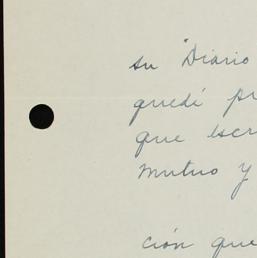 su "Diario
quedé pr
que escr
mutuo y
ción que